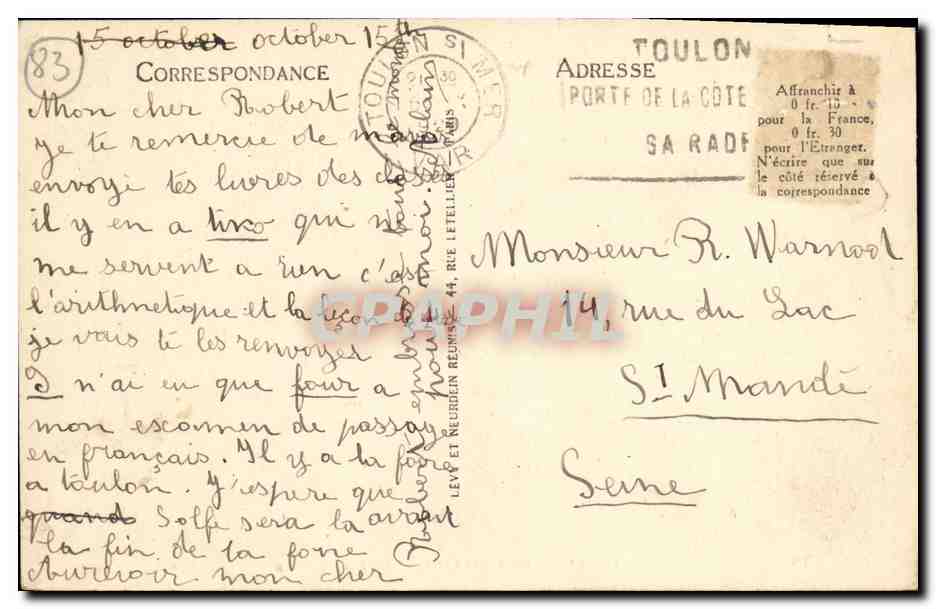 15 october october 15
83
CORRESPONDANCE
Mon cher Robert
je te remercie de mavoi
envoyé tes livres des classes
il y en a tiro qui ne
me servent a rien c'est
l'arithmetique et la leçon de
je vais te les renvoyer
J n'ai eu que four a
mon escamen de passage
en français. Il y a la foire
a toulon. J'espere que
quand Solfé sera la avant
la fin de la foire
Aurevoir mon cher
Robert embrasse
pour moi
LEVY ET NEURDEIN RÉUNIS, 44, RUE LETELLIER — PARIS
TOULON S/ MER
30
VAR
ADRESSE
TOULON
PORTE DE LA CÔTE
SA RADE
Affranchir à
0 fr. 10
pour la France,
0 fr. 30
pour l'Etranger.
N'écrire que sur
le côté réservé à
la correspondance
Monsieur R. Warnod
14, rue du Lac
St Mandé
Seine
CPAPHIL